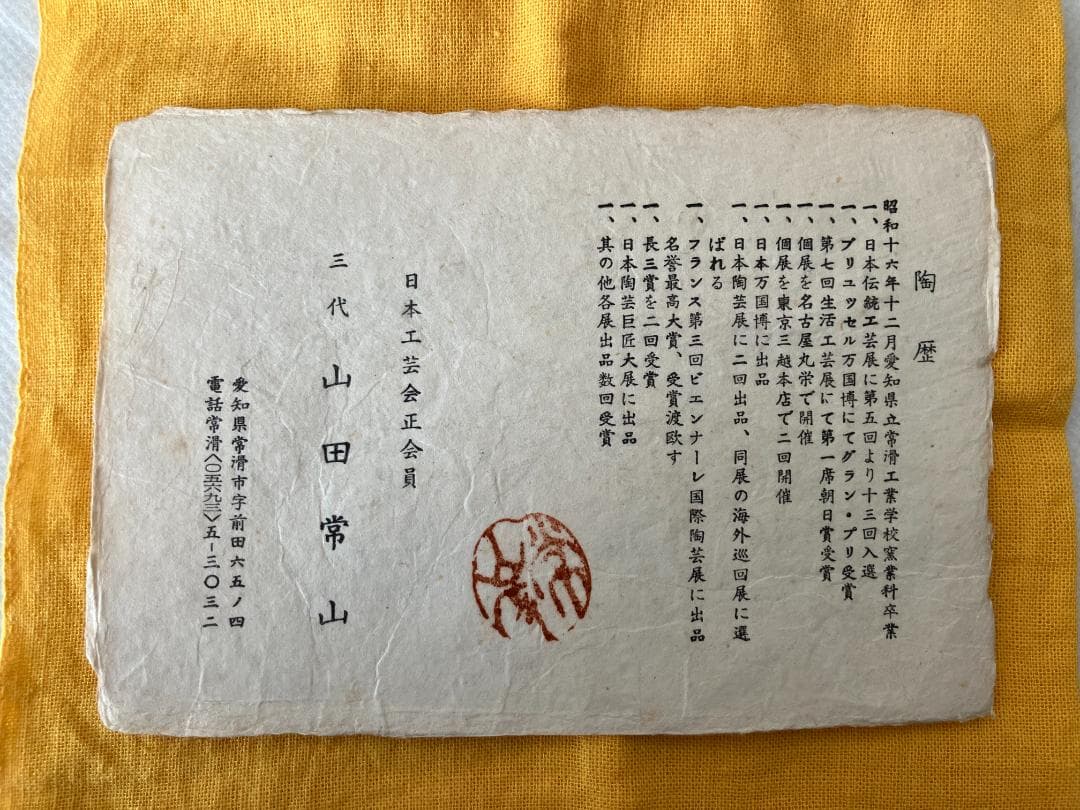 陶歴
昭和十六年十二月愛知県立常滑工業学校窯業科卒業
一、日本伝統工芸展に第五回より十三回入選
一、ブリュッセル万国博にてグラン・プリ受賞
一、第七回生活工芸展にて第一席朝日賞受賞
一、個展を名古屋丸栄で開催
一、個展を東京三越本店で二回開催
一、日本万国博に出品
一、日本陶芸展に二回出品、同展の海外巡回展に選
ばれる
一、フランス第三回ビエンナーレ国際陶芸展に出品
名誉最高大賞、受賞渡欧す
一、長三賞を二回受賞
一、日本陶芸巨匠大展に出品
一、其の他各展出品数回受賞
日本工芸会正会員
三代 山田常山
愛知県常滑市字前田六五ノ四
電話常滑〈〇五六九三〉五-三〇三二